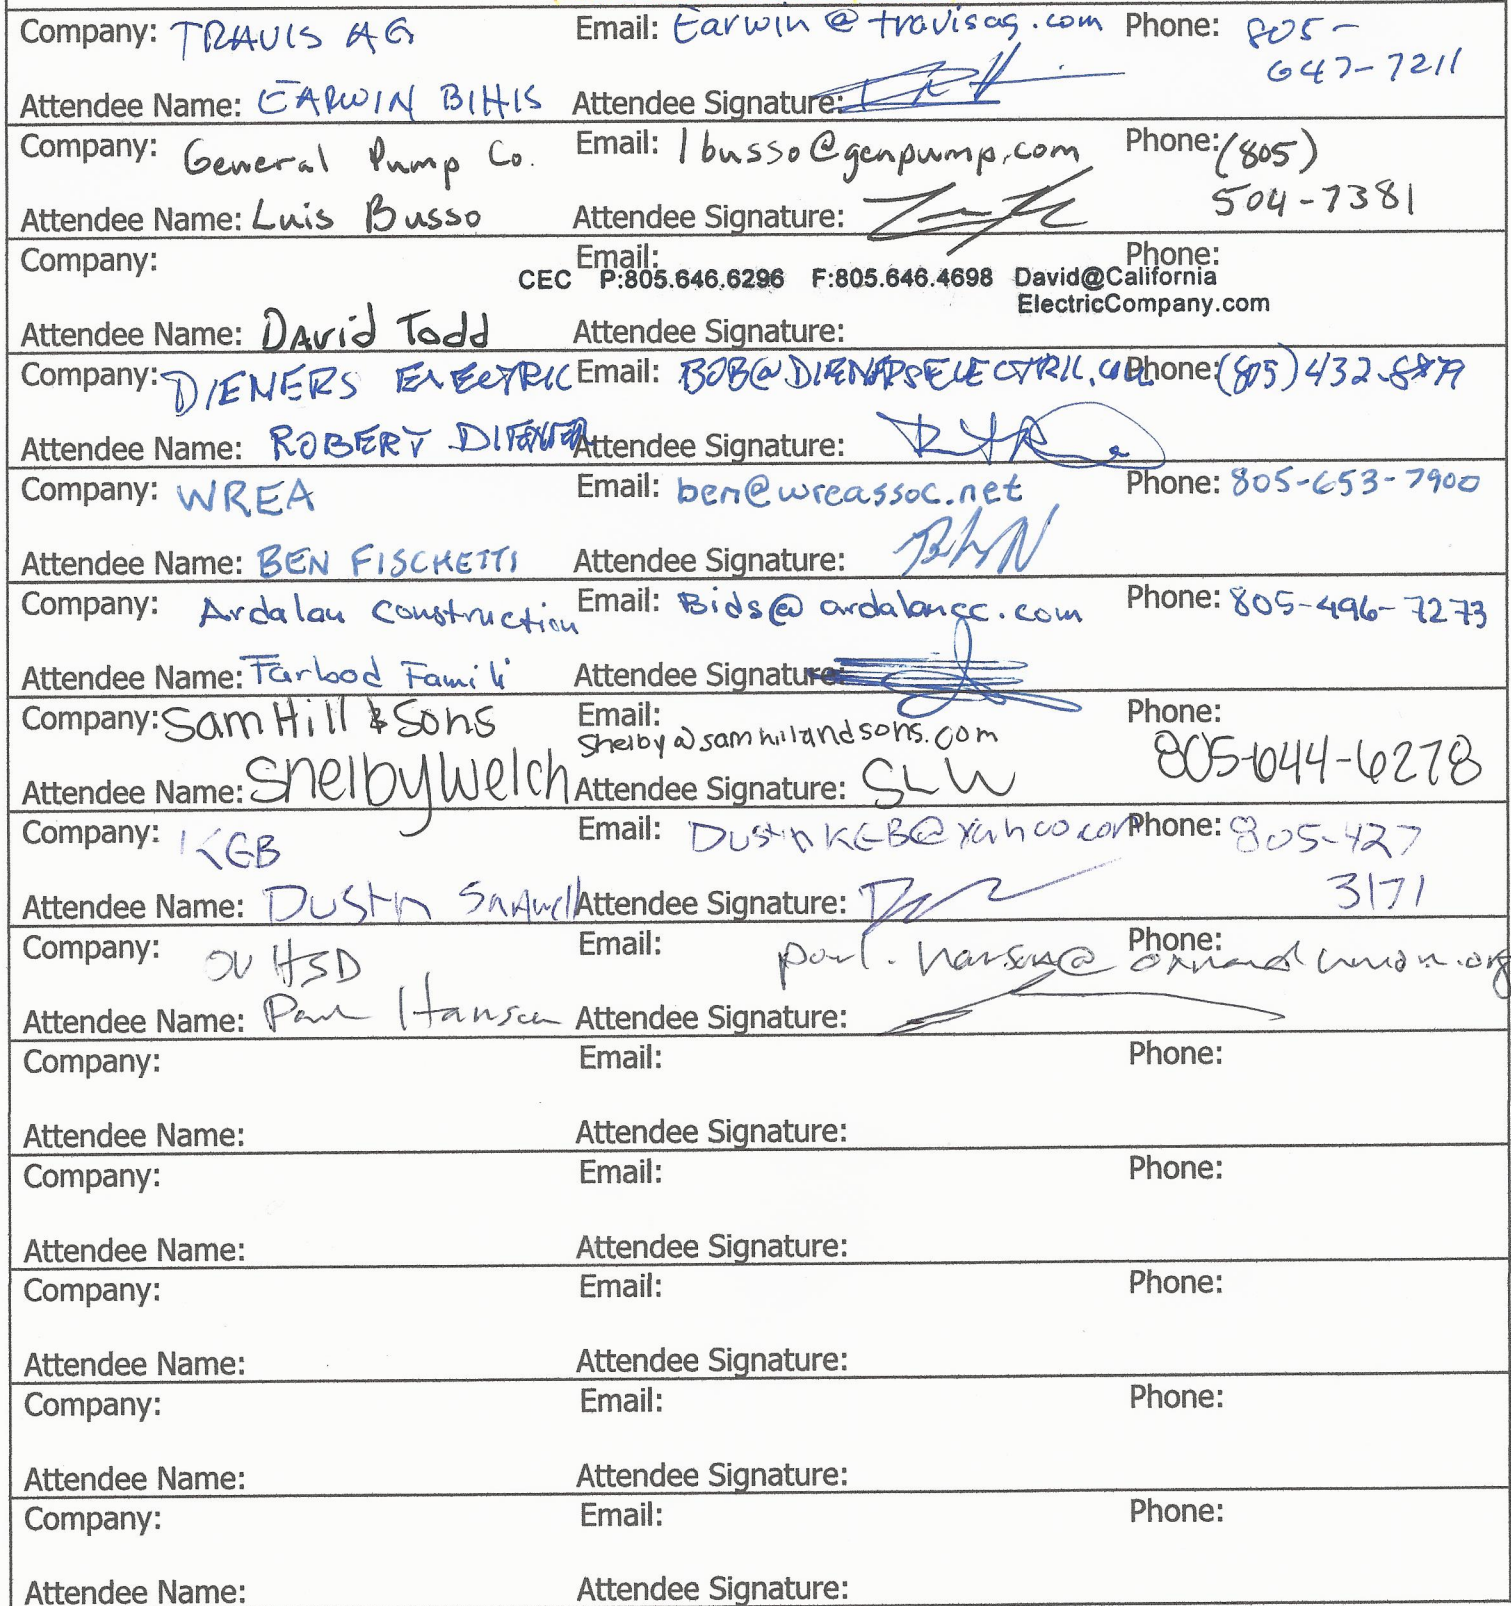 Company: TRAVIS AG Email: Earwin@travisag.com Phone: 805-
647-7211
Attendee Name: EARWIN BIHIS Attendee Signature:
Company: General Pump Co. Email: lbusso@genpump.com Phone: (805)
504-7381
Attendee Name: Luis Busso Attendee Signature:
Company: Email: Phone:
CEC P:805.646.6296 F:805.646.4698 David@California
ElectricCompany.com
Attendee Name: David Todd Attendee Signature:
Company: DIENERS ELECTRIC Email: Phone: (805)
Attendee Name: ROBERT Attendee Signature:
Company: WREA Email: ben@wreassoc.net Phone: 805-653-7900
Attendee Name: BEN FISCHETTI Attendee Signature:
Company: Ardalan Construction Email: Bids@ardalancc.com Phone: 805-496-7273
Attendee Name: Farbod Famili Attendee Signature:
Company: Sam Hill & Sons Email: Phone:
shelby@samhillandsons.com 805-644-6278
Attendee Name: Shelby Welch Attendee Signature: SLW
Company: KGB Email: DustinKGB@yahoo.com Phone: 805-427
3171
Attendee Name: Dustin Attendee Signature:
Company: OUHSD Email: paul.hansen@oxnardunion.org Phone:
Attendee Name: Paul Hansen Attendee Signature:
Company: Email: Phone:
Attendee Name: Attendee Signature:
Company: Email: Phone:
Attendee Name: Attendee Signature:
Company: Email: Phone:
Attendee Name: Attendee Signature:
Company: Email: Phone:
Attendee Name: Attendee Signature:
Company: Email: Phone:
Attendee Name: Attendee Signature: